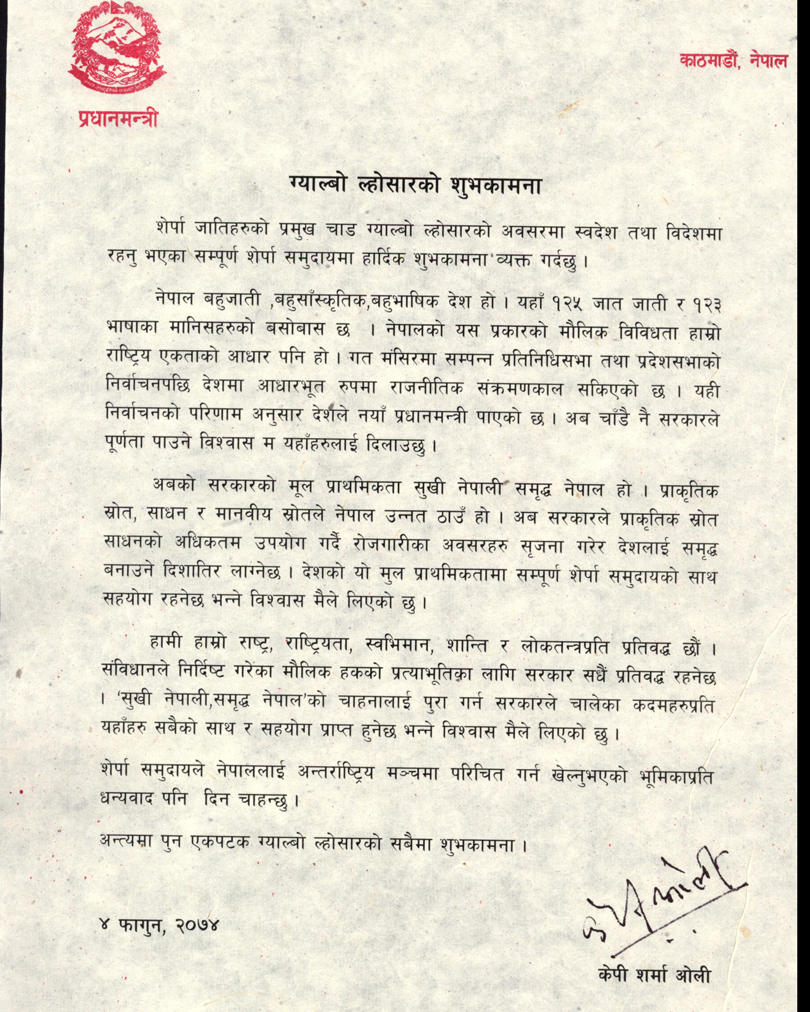 काठमाडौं, नेपाल
प्रधानमन्त्री
ग्याल्बो ल्होसारको शुभकामना
शेर्पा जातिहरुको प्रमुख चाड ग्याल्बो ल्होसारको अवसरमा स्वदेश तथा विदेशमा
रहनु भएका सम्पूर्ण शेर्पा समुदायमा हार्दिक शुभकामना व्यक्त गर्दछु ।
नेपाल बहुजाती ,बहुसाँस्कृतिक,बहुभाषिक देश हो । यहाँ १२५ जात जाती र १२३
भाषाका मानिसहरुको बसोबास छ । नेपालको यस प्रकारको मौलिक विविधता हाम्रो
राष्ट्रिय एकताको आधार पनि हो । गत मंसिरमा सम्पन्न प्रतिनिधिसभा तथा प्रदेशसभाको
निर्वाचनपछि देशमा आधारभूत रुपमा राजनीतिक संक्रमणकाल सकिएको छ । यही
निर्वाचनको परिणाम अनुसार देशले नयाँ प्रधानमन्त्री पाएको छ । अब चाँडै नै सरकारले
पूर्णता पाउने विश्वास म यहाँहरुलाई दिलाउछु ।
अबको सरकारको मूल प्राथमिकता सुखी नेपाली समृद्ध नेपाल हो । प्राकृतिक
स्रोत, साधन र मानवीय स्रोतले नेपाल उन्नत ठाउँ हो । अब सरकारले प्राकृतिक स्रोत
साधनको अधिकतम उपयोग गर्दै रोजगारीका अवसरहरु सृजना गरेर देशलाई समृद्ध
बनाउने दिशातिर लाग्नेछ । देशको यो मुल प्राथमिकतामा सम्पूर्ण शेर्पा समुदायको साथ
सहयोग रहनेछ भन्ने विश्वास मैले लिएको छु ।
हामी हाम्रो राष्ट्र, राष्ट्रियता, स्वभिमान, शान्ति र लोकतन्त्रप्रति प्रतिवद्ध छौं ।
संविधानले निर्दिष्ट गरेका मौलिक हकको प्रत्याभूतिका लागि सरकार सधैं प्रतिवद्ध रहनेछ
। ‘सुखी नेपाली,समृद्ध नेपाल’को चाहनालाई पुरा गर्न सरकारले चालेका कदमहरुप्रति
यहाँहरु सबैको साथ र सहयोग प्राप्त हुनेछ भन्ने विश्वास मैले लिएको छु ।
शेर्पा समुदायले नेपाललाई अन्तर्राष्ट्रिय मञ्चमा परिचित गर्न खेल्नुभएको भूमिकाप्रति
धन्यवाद पनि दिन चाहन्छु ।
अन्त्यमा पुन एकपटक ग्याल्बो ल्होसारको सबैमा शुभकामना ।
४ फागुन, २०७४
के पी ओली
केपी शर्मा ओली